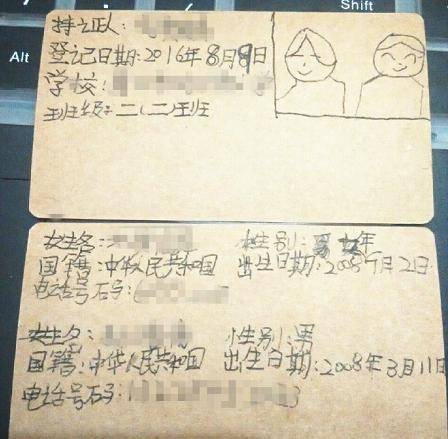 Alt
Shift
持证人:
登记日期:2016年8月9日
学校:
班级:二(二)班
姓名:
性别:女
国籍:中华人民共和国
出生日期:2008年7月2日
电话号码:
姓名:
性别:男
国籍:中华人民共和国
出生日期:2008年3月11日
电话号码: